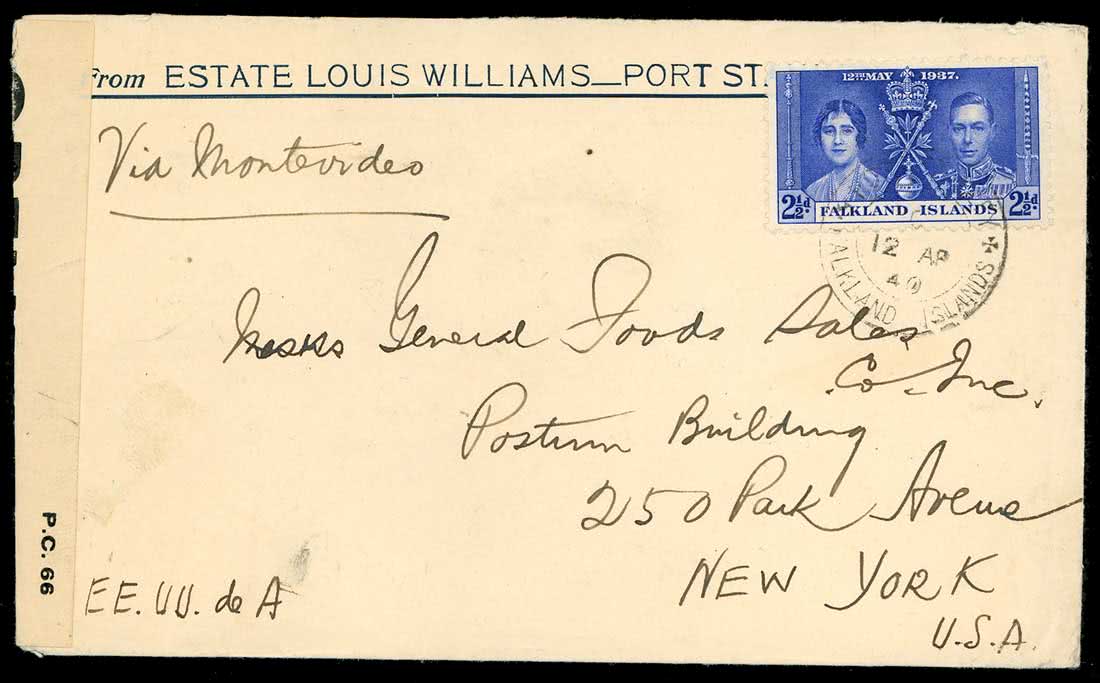 From ESTATE LOUIS WILLIAMS—PORT ST
12TH MAY 1937.
2½d. FALKLAND ISLANDS 2½d.
12 AP
40
FALKLAND ISLANDS
Via Montevideo
General Foods Sales
Co. Inc.
Postum Building
250 Park Avenue
NEW YORK
U.S.A.
EE. UU. de A
P.C. 66